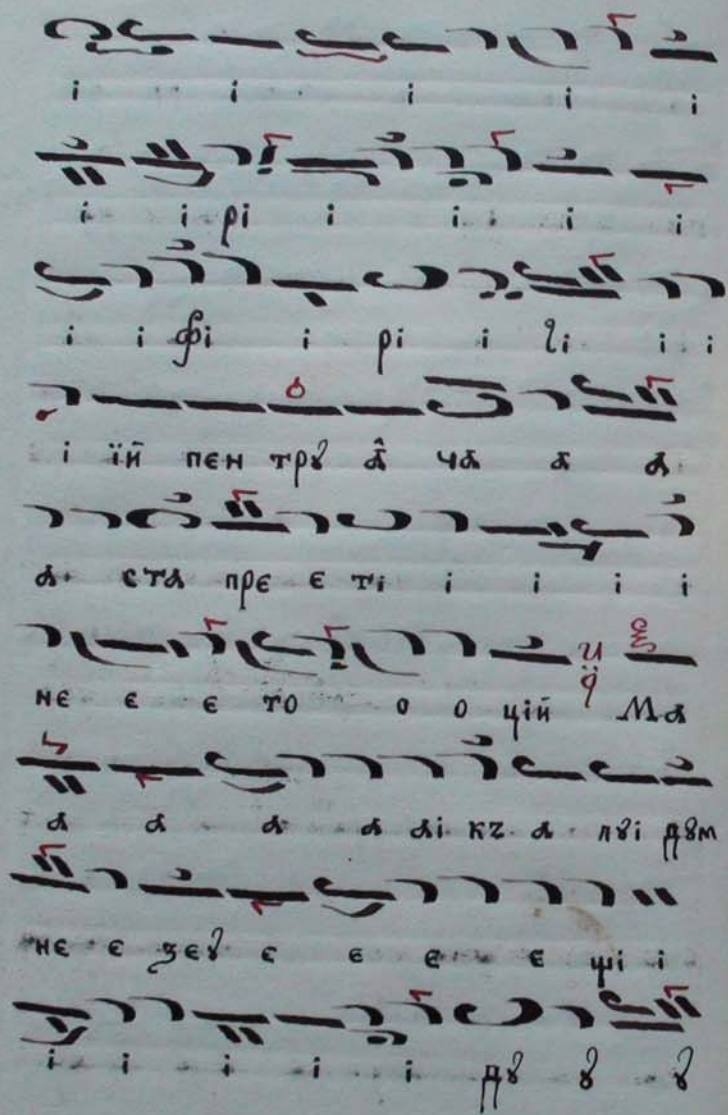 і і і і і
і і рі і і і і
і і фі і рі і гі і і
і їй пєн трꙋ а̂ ча а а
а ста прє є ті і і і і
нє є є то о о цїй Ма
а а а а аі кꙁ а лꙋі дꙋм
нє є ꙁєꙋ є є є є ші і
і і і і і дꙋ ꙋ ꙋ